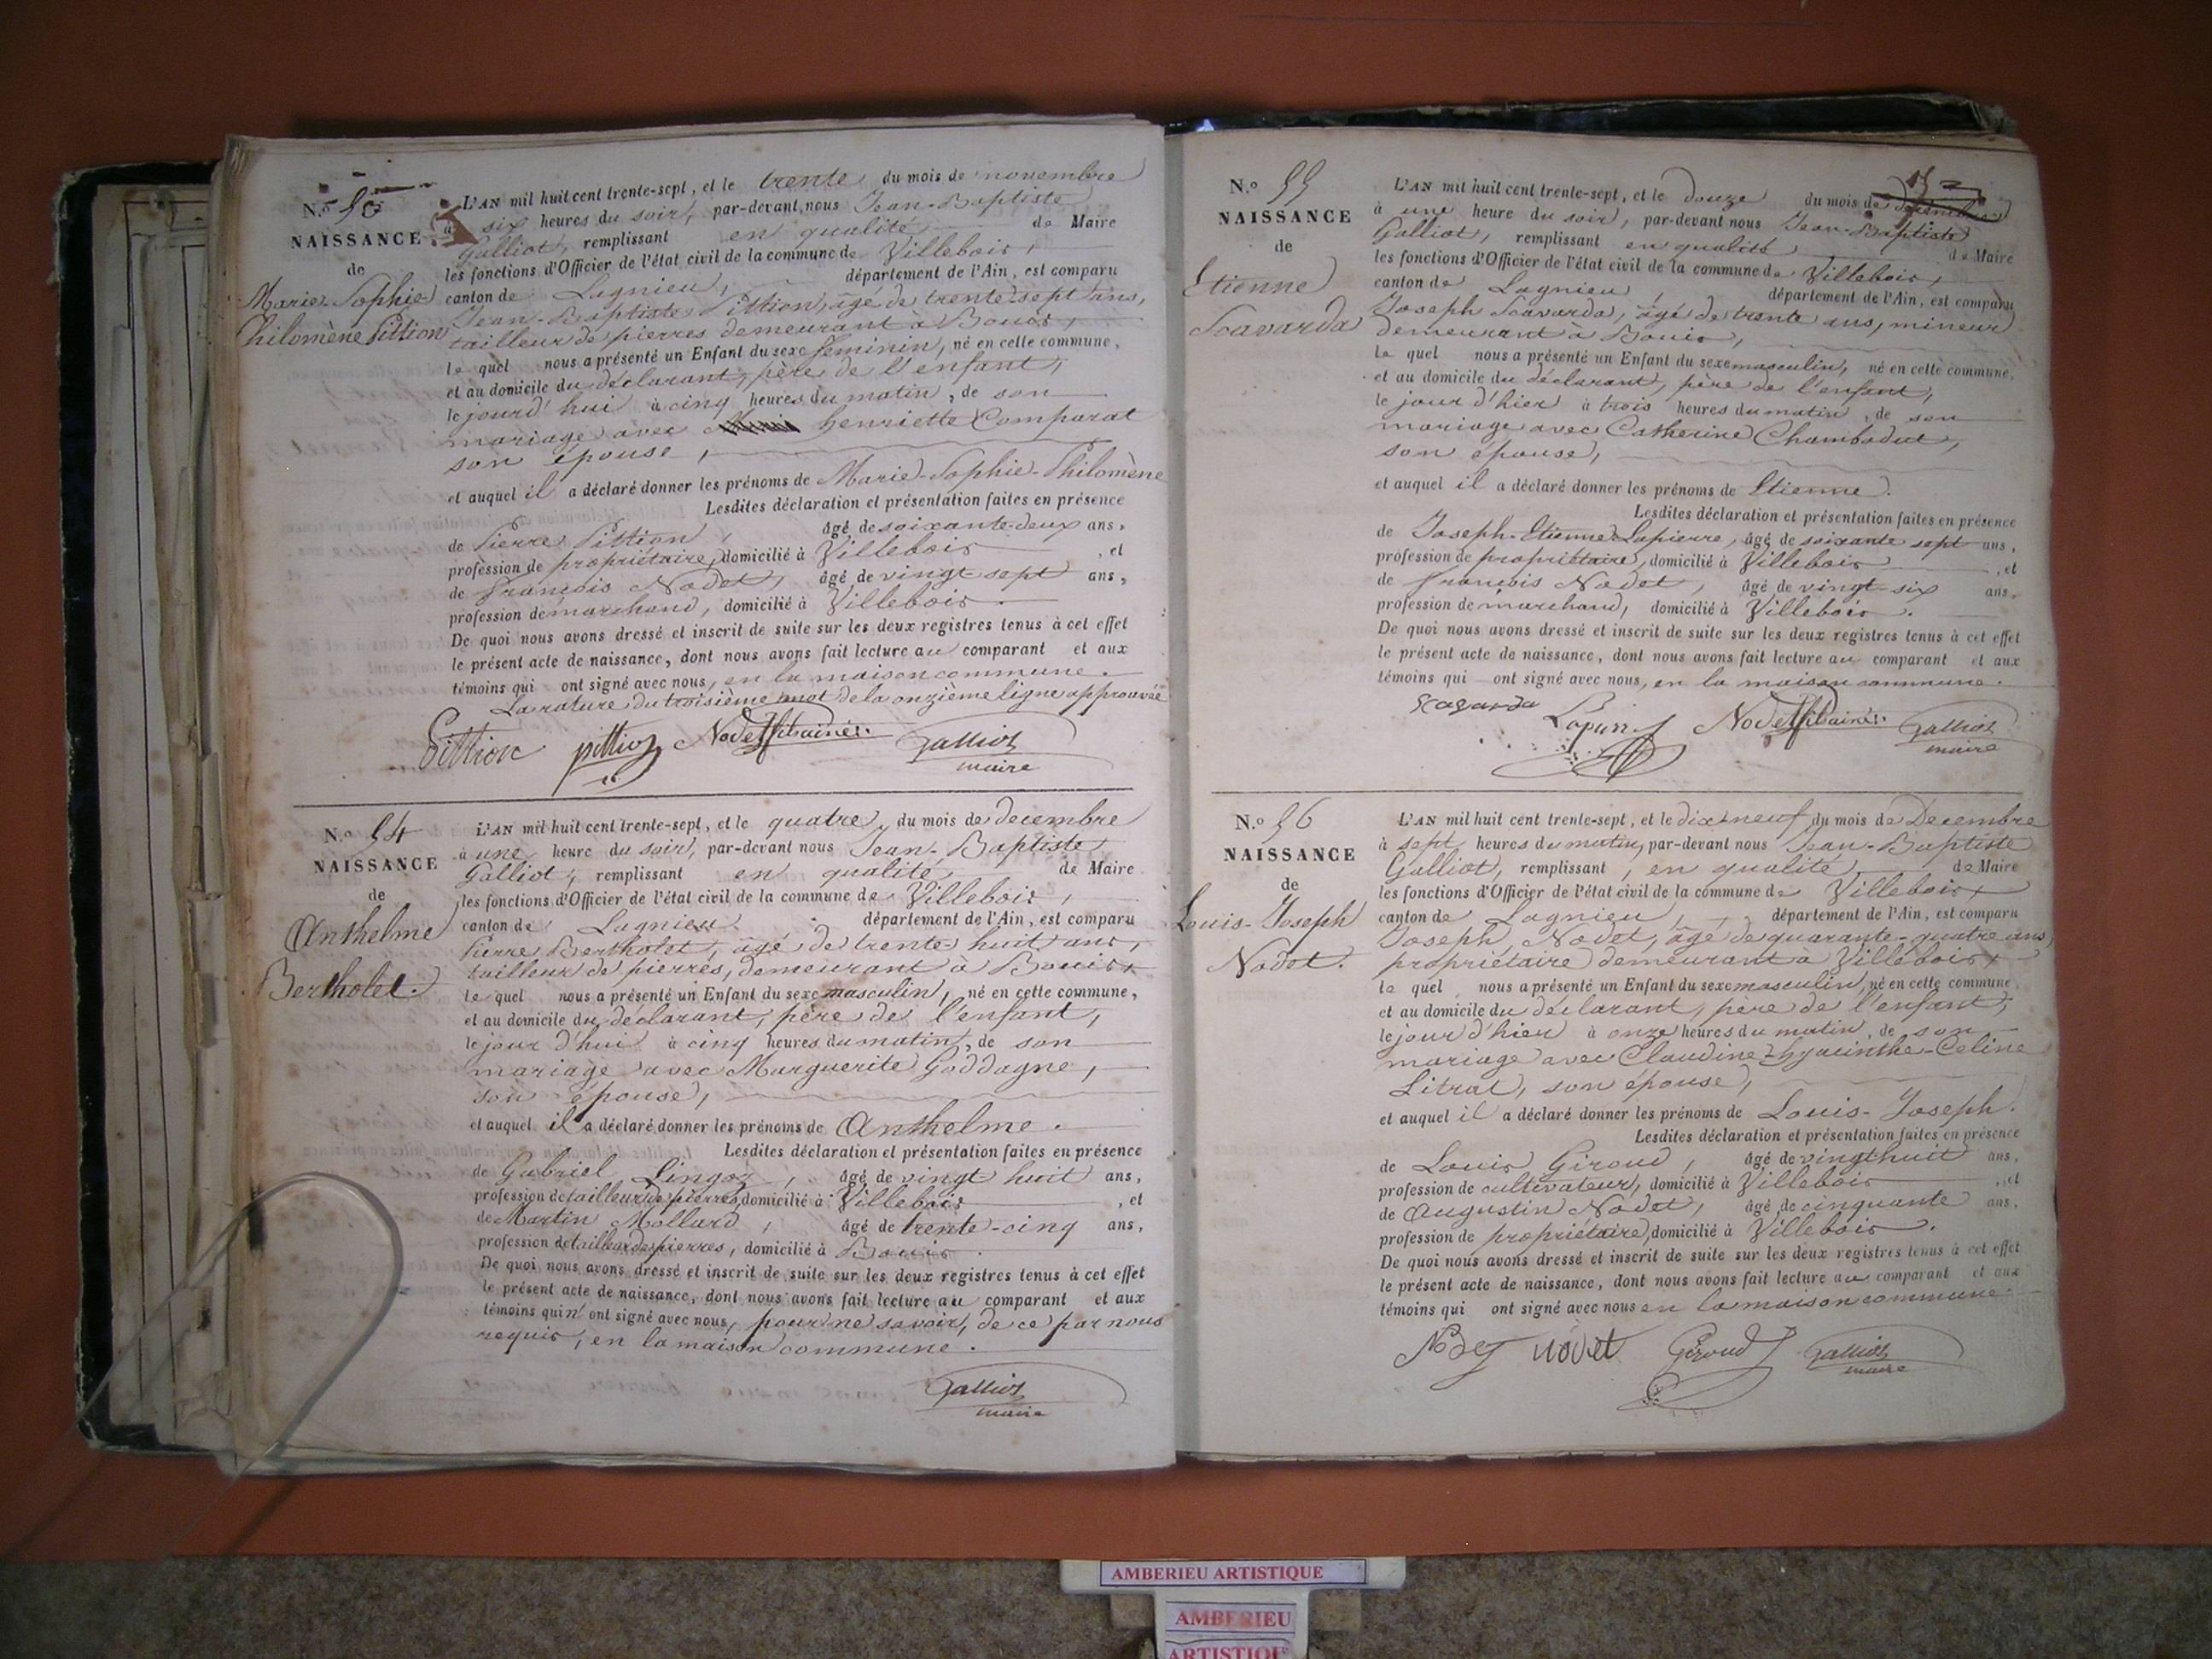 NAISSANCE
de
Marie-Sophie
Philomène Pittion
L'AN mil huit cent trente-sept, et le trente du mois de novembre
à six heures du soir, par-devant nous Jean-Baptiste
Galliot, remplissant en qualité de Maire
les fonctions d'Officier de l'état civil de la commune de Villebois,
canton de Lagnieu, département de l'Ain, est comparu
Jean-Baptiste Pittion, âgé de trente-sept ans,
tailleur de pierres demeurant à Bouis,
le quel nous a présenté un Enfant du sexe féminin, né en cette commune,
et au domicile du déclarant, père de l'enfant,
le jourd'hui à cinq heures du matin, de son
mariage avec henriette Comparat
son épouse,
et auquel il a déclaré donner les prénoms de Marie-Sophie-Philomène
Lesdites déclaration et présentation faites en présence
de Pierre Pittion, âgé de soixante-deux ans,
profession de propriétaire, domicilié à Villebois, et
de François Nodet, âgé de vingt-sept ans,
profession de marchand, domicilié à Villebois.
De quoi nous avons dressé et inscrit de suite sur les deux registres tenus à cet effet
le présent acte de naissance, dont nous avons fait lecture au comparant et aux
témoins qui ont signé avec nous, en la maison commune.
La rature du troisième mot de la onzième ligne approuvée
Pittion pittion Nodet fils ainé. Galliot
maire
N.o 54
NAISSANCE
de
Anthelme
Bertholet.
L'AN mil huit cent trente-sept, et le quatre du mois de decembre
à une heure du soir, par-devant nous Jean-Baptiste
Galliot, remplissant en qualité de Maire
les fonctions d'Officier de l'état civil de la commune de Villebois,
canton de Lagnieu département de l'Ain, est comparu
Pierre Bertholet, âgé de trente-huit ans,
tailleur de pierres, demeurant à Bouis,
le quel nous a présenté un Enfant du sexe masculin, né en cette commune,
et au domicile du déclarant, père de l'enfant,
le jour d'hui à cinq heures du matin, de son
mariage avec Marguerite Goddagne,
son épouse,
et auquel il a déclaré donner les prénoms de Anthelme.
Lesdites déclaration et présentation faites en présence
de Gabriel Lingoz, âgé de vingt huit ans,
profession de tailleur de pierres, domicilié à Villebois, et
de Martin Mollard, âgé de trente-cinq ans,
profession de tailleur de pierres, domicilié à Bouis.
De quoi nous avons dressé et inscrit de suite sur les deux registres tenus à cet effet
le présent acte de naissance, dont nous avons fait lecture au comparant et aux
témoins qui n'ont signé avec nous, pour ne savoir, de ce par nous
requis, en la maison commune.
Galliot
maire
N.o 55
NAISSANCE
de
Etienne
Scavarda
L'AN mil huit cent trente-sept, et le douze du mois de décembre
à une heure du soir, par-devant nous Jean-Baptiste
Galliot, remplissant en qualité de Maire
les fonctions d'Officier de l'état civil de la commune de Villebois,
canton de Lagnieu, département de l'Ain, est comparu
Joseph Scavarda, âgé de trente ans, mineur
demeurant à Bouis,
le quel nous a présenté un Enfant du sexe masculin, né en cette commune,
et au domicile du déclarant, père de l'enfant,
le jour d'hier à trois heures du matin, de son
mariage avec Catherine Chambadut,
son épouse,
et auquel il a déclaré donner les prénoms de Etienne.
Lesdites déclaration et présentation faites en présence
de Joseph-Etienne Lapierre, âgé de soixante sept ans,
profession de propriétaire, domicilié à Villebois, et
de François Nodet, âgé de vingt-six ans,
profession de marchand, domicilié à Villebois.
De quoi nous avons dressé et inscrit de suite sur les deux registres tenus à cet effet
le présent acte de naissance, dont nous avons fait lecture au comparant et aux
témoins qui ont signé avec nous, en la maison commune.
Nodet fils ainé. Galliot
maire
N.o 56
NAISSANCE
de
Louis-Joseph
Nodet.
L'AN mil huit cent trente-sept, et le dix-neuf du mois de Decembre
à sept heures du matin, par-devant nous Jean-Baptiste
Galliot, remplissant, en qualité de Maire
les fonctions d'Officier de l'état civil de la commune de Villebois,
canton de Lagnieu, département de l'Ain, est comparu
Joseph Nodet, âgé de quarante-quatre ans,
propriétaire demeurant à Villebois,
le quel nous a présenté un Enfant du sexe masculin, né en cette commune,
et au domicile du déclarant, père de l'enfant,
le jour d'hier à onze heures du matin, de son
mariage avec Claudine-hyacinthe-Celine
Litral, son épouse,
et auquel il a déclaré donner les prénoms de Louis-Joseph.
Lesdites déclaration et présentation faites en présence
de Louis Giroud, âgé de vingt huit ans,
profession de cultivateur, domicilié à Villebois, et
de Augustin Nodet, âgé de cinquante ans,
profession de propriétaire, domicilié à Villebois.
De quoi nous avons dressé et inscrit de suite sur les deux registres tenus à cet effet
le présent acte de naissance, dont nous avons fait lecture au comparant et aux
témoins qui ont signé avec nous en la maison commune.
Nodet nodet Giroud Galliot
maire
AMBERIEU ARTISTIQUE
AMBERIEU
ARTISTIQUE